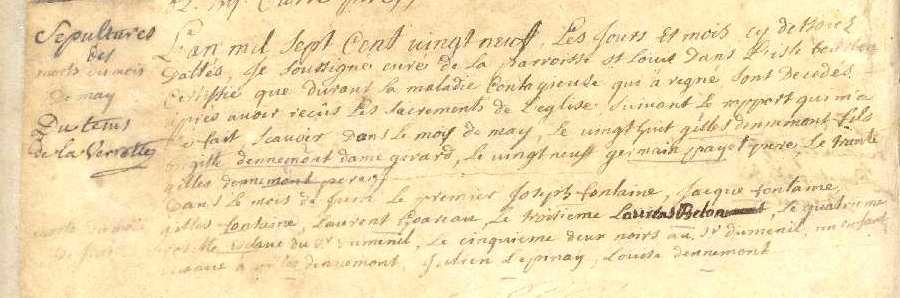 Sepultures
des
morts du mois
de may
Du tems
de la Verrolle
L'an mil sept cent vingt neuf, Les jours Et mois cy dessous
dattés, Je soussigné curé de la parroisse St Louis dans L'isle
Certifie que durant la maladie contagieuse qui à regné sont decedés
après avoir reçus Les sacrements de L'eglise suivant Le rapport qui m'a
fait scavoir dans le mois de may, Le vingt huit gilles dennemont fils
gille dennemont dame gerard, Le vingt neuff germain payet pere, Le trente
gilles dennemont pere
Dans Le mois de juin Le premier Joseph fontaine, Jacque fontaine,
gilles fontaine, Laurent, Le troisieme, Le quatrieme
esclave du Sr dumenil, Le cinquieme deux noirs au Sr dumenil, un enfant
à gilles dennemont, Julien Lepinay, Louise dennemont